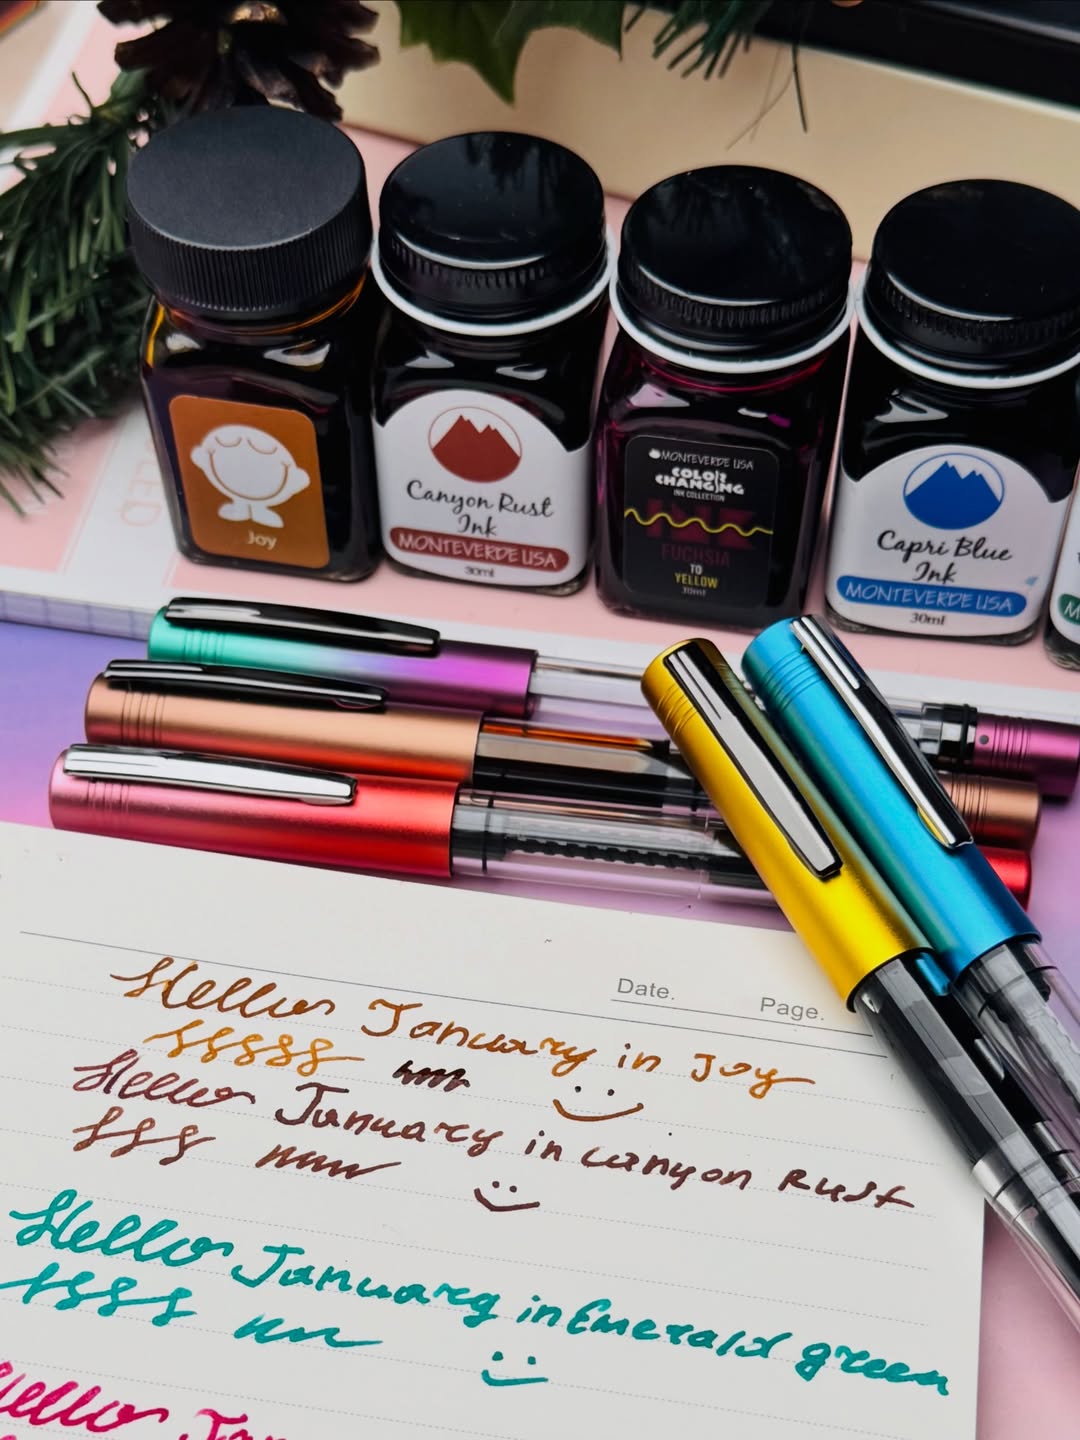 Joy
Canyon Rust
Ink
MONTEVERDE USA
30ml
MONTEVERDE USA
COLOR
CHANGING
INK COLLECTION
INK
FUCHSIA
TO
YELLOW
30ml
Capri Blue
Ink
MONTEVERDE USA
30ml
M
Date.
Page.
Hello January in Joy
Hello January in Canyon Rust
Hello January in Emerald green
Hello Jan